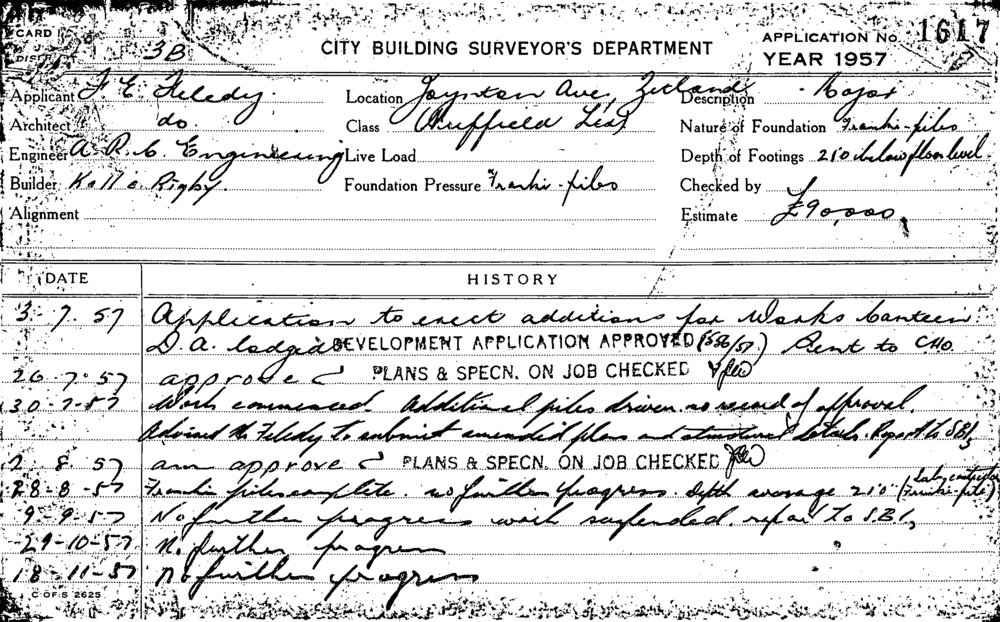 CARD
DIST. 3B
CITY BUILDING SURVEYOR'S DEPARTMENT
APPLICATION No. 1617
YEAR 1957
Applicant F. E. Feledy.
Location Joynton Ave, Zetland
Description Major
Architect do.
Class Nuffield
Nature of Foundation Franki-piles
Engineer A. R. C. Engineering
Live Load
Depth of Footings 21'0" below floor level.
Builder Kell & Rigby.
Foundation Pressure Franki-piles
Checked by
Alignment
Estimate £90,000,
DATE HISTORY
3. 7. 57 Application to erect additions for Works Canteen.
D. A. lodged DEVELOPMENT APPLICATION APPROVED (556/57) Sent to CHO.
26.7.57 approved PLANS & SPECN. ON JOB CHECKED
30-7-57 Work commenced. Additional piles driven. no record of approval.
Advised Mr Feledy to submit amended plans and structural details. Report to SBI,
2. 8. 57 am approved PLANS & SPECN. ON JOB CHECKED
28-8-57 Franki piles complete. no further progress. Depth average 21'0" (Sub-contractor Franki-pile)
9-9-57 No further progress work suspended. report to S.B.I,
29-10-57 No further progress
18-11-57 No further progress
C OF S 2625